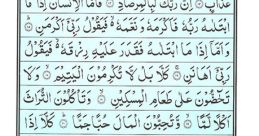 عَذَابٍ ۝ اِنَّ رَبَّكَ لَبِالْمِرْصَادِ ۝ فَاَمَّا الْاِنْسَانُ اِذَا مَا
ابْتَلٰىهُ رَبُّهٗ فَاَكْرَمَهٗ وَنَعَّمَهٗ ۙ فَيَقُوْلُ رَبِّيْٓ اَكْرَمَنِ ۝
وَاَمَّآ اِذَا مَا ابْتَلٰىهُ فَقَدَرَ عَلَيْهِ رِزْقَهٗ ۙ فَيَقُوْلُ
رَبِّيْٓ اَهَانَنِ ۝ كَلَّا بَلْ لَّا تُكْرِمُوْنَ الْيَتِيْمَ ۝ وَلَا
تَحٰٓضُّوْنَ عَلٰى طَعَامِ الْمِسْكِيْنِ ۝ وَتَاْكُلُوْنَ التُّرَاثَ
اَكْلًا لَّمًّا ۝ وَّتُحِبُّوْنَ الْمَالَ حُبًّا جَمًّا ۝ كَلَّآ اِذَا